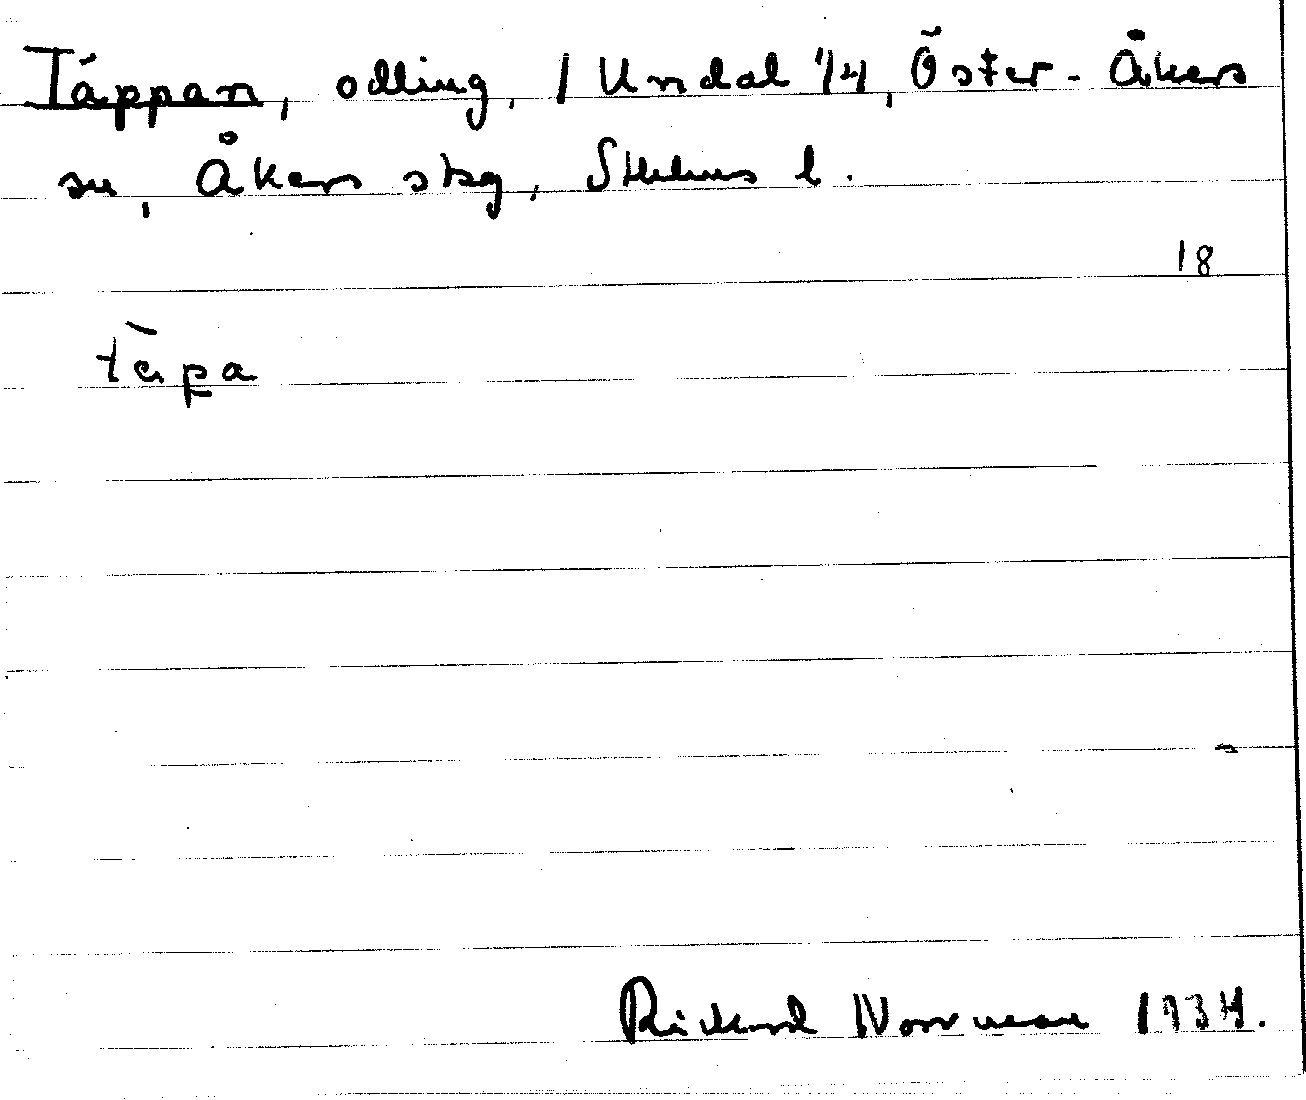 Täppan, odling, / Undal 1/4, Öster-Åkers
sn, Åkers skg, Sthlms l.
18
tàpa
Rickard Norrman 1934.